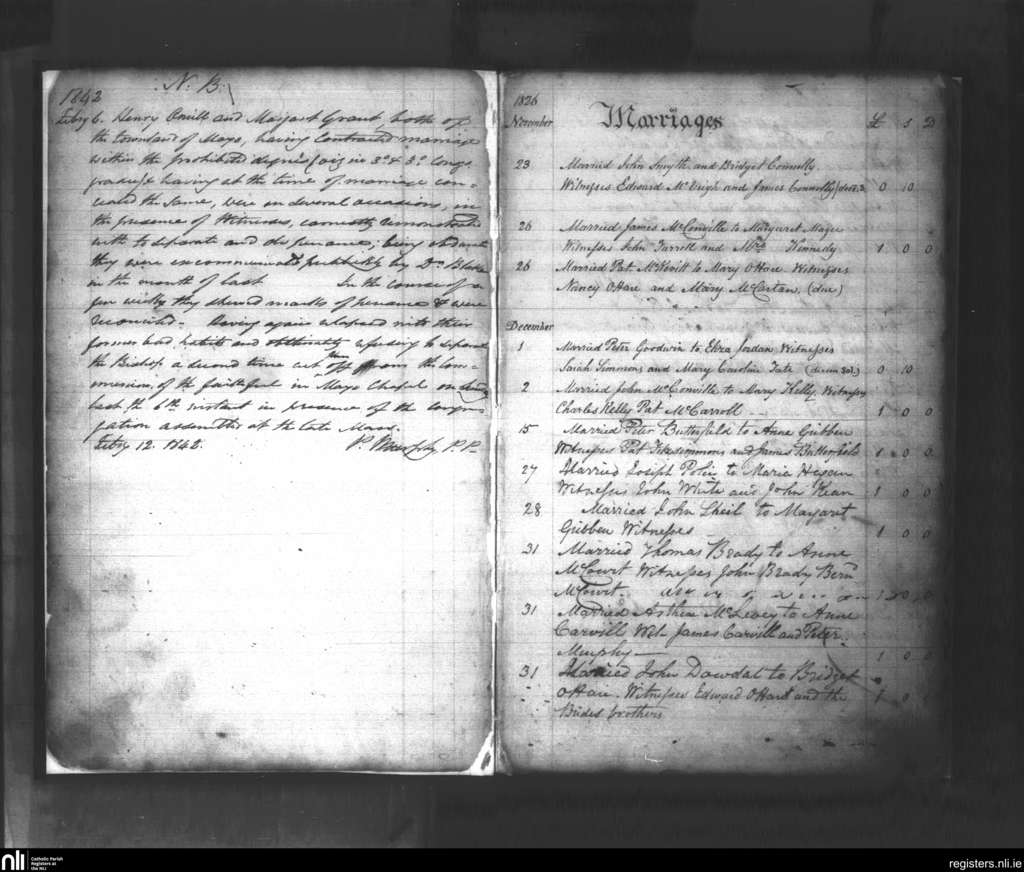 N. B.
1842
Feby 6. Henry Oneill and Margaret Grant both of
the townland of Mayo, having contracted marriage
within the prohibited degrees (viz in 3º & 3º
& having at the time of marriage con-
cealed the same, were on several occasions, in
the presence of Witnesses, earnestly remonstrated
with to separate and do penance; being obstinate
they were excommunicated publickly by Dr. Blake
in the month of last In the course of a
few weeks they shewed marks of penance & were
reconciled. Having again relapsed into their
former bad habits and obstinately refusing to separate
the Bishop a second time cut them off from the com-
munion, of the faithful in Mayo Chapel on
last, the 6th instant in presence of the congre-
gation assembled at the late Mass.
Feby 12. 1842. P. Murphy P.P.
1826
November Marriages £ S D
23 Married John Smyth and Bridget Connolly
Witnesses Edward McVeigh and James Connolly 0 10
26 Married James McConville to Margaret Magee
Witnesses John Farrell and Mrs. Kennedy 1 0 0
26 Married Pat McKevitt to Mary OHare Witnesses
Nancy OHare and Mary McCartan. (due)
December
1 Married Peter Goodwin to Eliza Jordan Witnesses
Sarah Simmons and Mary Caroline Tate 0 10
2 Married John McConville to Mary Kelly Witnesses
Charles Kelly Pat McCarroll 1 0 0
15 Married Peter Butterfield to Anne Gribben
Witnesses Pat Fitzsimmons and James Butterfield 1 0 0
27 Married Joseph to Maria
Witnesses John White and John Kean 1 0 0
28 Married John Sheil to Margaret
Gribben Witnesses 1 0 0
31 Married Thomas Brady to Anne
McCourt Witnesses John Brady Bernd
McCourt.
31 Married Arthur McLevey to Anne
Carvill Wit- James Carvill and Peter
Murphy 1 0 0
31 Married John Dowdal to Bridget
OHare. Witnesses Edward OHare and the
Brides brothers
nli
Catholic Parish
Registers at
the NLI
registers.nli.ie